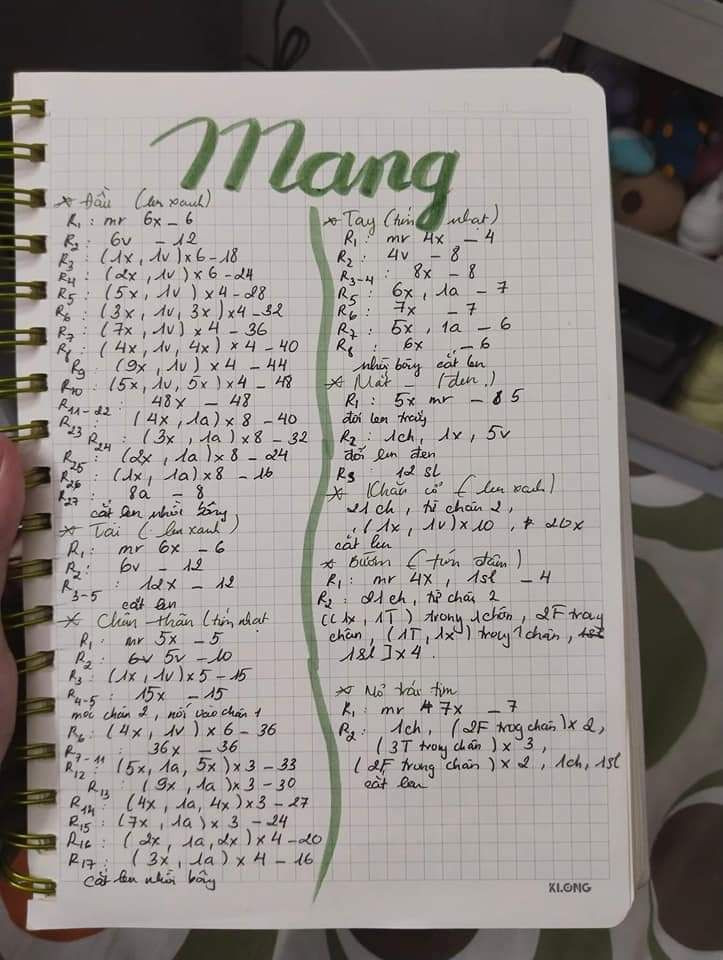 Mang
* Đầu (len xanh)
R1: mr 6x - 6
R2: 6v - 12
R3: (1x, 1v) x 6 - 18
R4: (2x, 1v) x 6 - 24
R5: (5x, 1v) x 4 - 28
R6: (3x, 1v, 3x) x 4 - 32
R7: (7x, 1v) x 4 - 36
R8: (4x, 1v, 4x) x 4 - 40
R9: (9x, 1v) x 4 - 44
R10: (5x, 1v, 5x) x 4 - 48
R11-22: 48x - 48
R23: (4x, 1a) x 8 - 40
R24: (3x, 1a) x 8 - 32
R25: (2x, 1a) x 8 - 24
R26: (1x, 1a) x 8 - 16
R27: 8a - 8
cắt len nhồi bông
* Tai (len xanh)
R1: mr 6x - 6
R2: 6v - 12
R3-5: 12x - 12
cắt len
* Chân - thân (tím nhạt
R1: mr 5x - 5
R2: 6v 5v - 10
R3: (1x, 1v) x 5 - 15
R4-5: 15x - 15
móc chân 2, nối vào chân 1
R6: (4x, 1v) x 6 - 36
R7-11: 36x - 36
R12: (5x, 1a, 5x) x 3 - 33
R13: (9x, 1a) x 3 - 30
R14: (4x, 1a, 4x) x 3 - 27
R15: (7x, 1a) x 3 - 24
R16: (2x, 1a, 2x) x 4 - 20
R17: (3x, 1a) x 4 - 16
cắt len nhồi bông
* Tay (tím nhạt)
R1: mr 4x - 4
R2: 4v - 8
R3-4: 8x - 8
R5: 6x, 1a - 7
R6: 7x - 7
R7: 5x, 1a - 6
R8: 6x - 6
nhồi bông cắt len
* Mắt - (đen)
R1: 5x mr - 5
đổi len trắng
R2: 1ch, 1x, 5v
đổi len đen
R3 12 sl
* Khăn cổ (len xanh)
21ch, từ chân 2,
(1x, 1v) x 10, 20x
cắt len
* Bướm (tím đậm)
R1: mr 4x, 1sl - 4
R2: 21ch, từ chân 2
[(1x, 1T) trong 1 chân, 2F trong
chân, (1T, 1x) trong 1 chân, 1sl
1sl] x 4
* Nơ trái tim
R1: mr 7x - 7
R2: 1ch, (2F trog chân) x 2,
(3T trong chân) x 3,
(2F trong chân) x 2, 1ch, 1sl
cắt len
KLONG